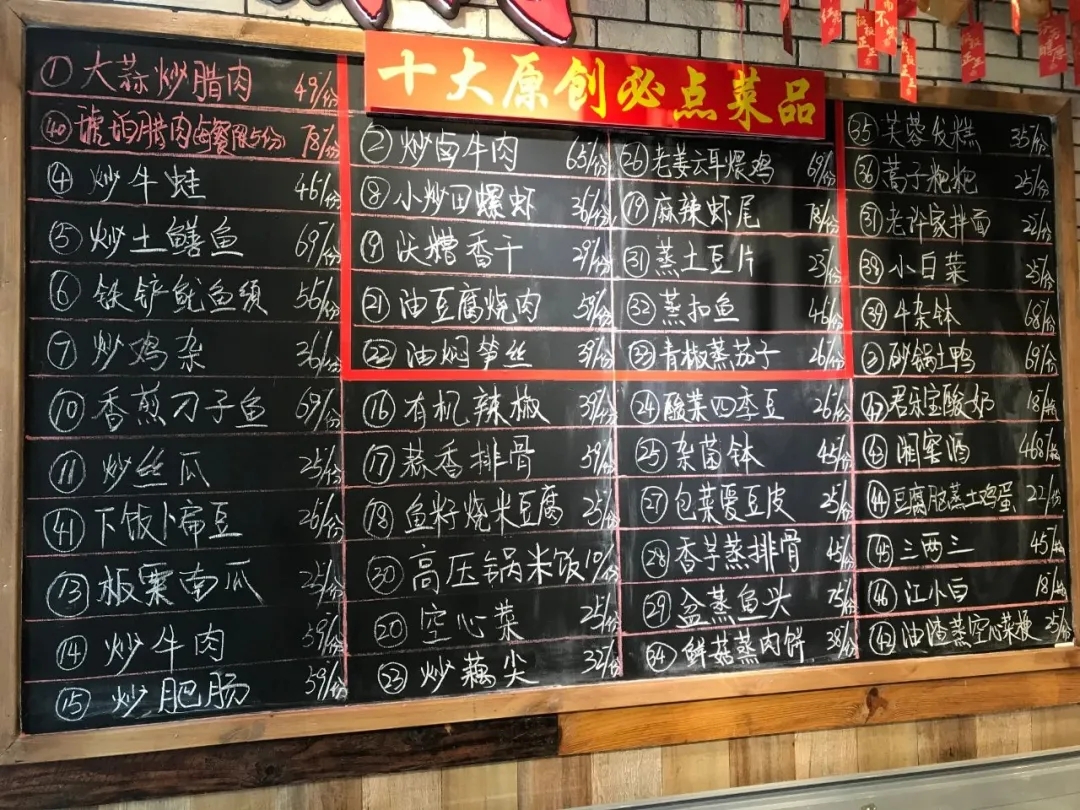 十大原创必点菜品
① 大蒜炒腊肉 49/份
㊵ 琥珀腊肉(每餐限5份) 78/份
④ 炒牛蛙 46/份
⑤ 炒土鳝鱼 69/份
⑥ 铁铲鱿鱼须 56/份
⑦ 炒鸡杂 36/份
⑩ 香煎刀子鱼 69/份
⑪ 炒丝瓜 25/份
㊶ 下饭卜扁豆 26/份
⑬ 板栗南瓜 25/份
⑭ 炒牛肉 59/份
⑮ 炒肥肠 59/份
② 炒卤牛肉 65/份
⑧ 小炒田螺虾 36/份
⑨ 沃糟香干 29/份
㉑ 油豆腐烧肉 58/份
㉒ 油焖笋丝 39/份
⑯ 有机辣椒 39/份
⑰ 蒜香排骨 59/份
⑱ 鱼籽烧米豆腐 25/份
㉚ 高压锅米饭 10/份
⑳ 空心菜 25/份
㉓ 炒藕尖 32/份
㉖ 老姜云耳煨鸡 69/份
⑲ 麻辣虾尾 78/份
㉛ 蒸土豆片 23/份
㉜ 蒸扣鱼 46/份
㉝ 青椒蒸茄子 26/份
㉔ 酸菜四季豆 26/份
㉕ 杂菌钵 45/份
㉗ 包菜夏豆皮 25/份
㉘ 香芋蒸排骨 45/份
㉙ 盆蒸鱼头 75/份
㉞ 鲜菇蒸肉饼 38/份
㉟ 芙蓉发糕 35/份
㊱ 蒿子粑粑 25/份
老许家拌面 22/份
㊳ 小白菜 25/份
㊴ 牛杂钵 68/份
③ 砂锅土鸭 69/份
君乐宝酸奶 18/瓶
㊸ 湘窖酒 468/瓶
㊹ 豆腐脑蒸土鸡蛋 22/份
㊺ 三两三 45/瓶
㊻ 江小白 18/瓶
㊷ 油渣蒸空心菜梗 25/份